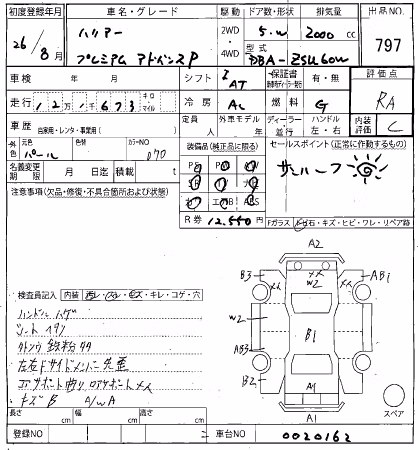 初度登録年月 車名・グレード 駆動 ドア数・形状 排気量 出品NO.
26/8月 ハリアー プレミアム アドバンスP 2WD・4WD 5・W 2000cc 797
型式 DBA-ZSU60W
車検 年 月 シフト I AT 保証書 有・無 評価点 RA
走行 12万1673 キロ マイル 冷房 AC 燃料 G 内装評価 C
車歴 自家用・レンタ・事業用( ) 定員 人 外車モデル 年 ディーラー・並行 ハンドル 左・右
元色 色 パール カラーNO 070 装備品(純正品に限る) セールスポイント(正常に作動するもの)
名義変更期限 月 日迄 積載 t サンルーフ
注意事項(欠品・修復・不具合個所および状態)
R券 12,550円
Fガラス トビ石・キズ・ヒビ・ワレ・リペア跡
A2
B3 AB1
W2 W2
B1
AB3
B2 A1
A1
スペア
検査員記入 内装 汚レ・スレ・キズ・キレ・コゲ・穴
ハンドル ハゲ
シート ヘタリ
左右Fサイドメンバー先歪
キズB A/WA
長さ cm 幅 cm 高さ cm
登録NO 車台NO 0020162